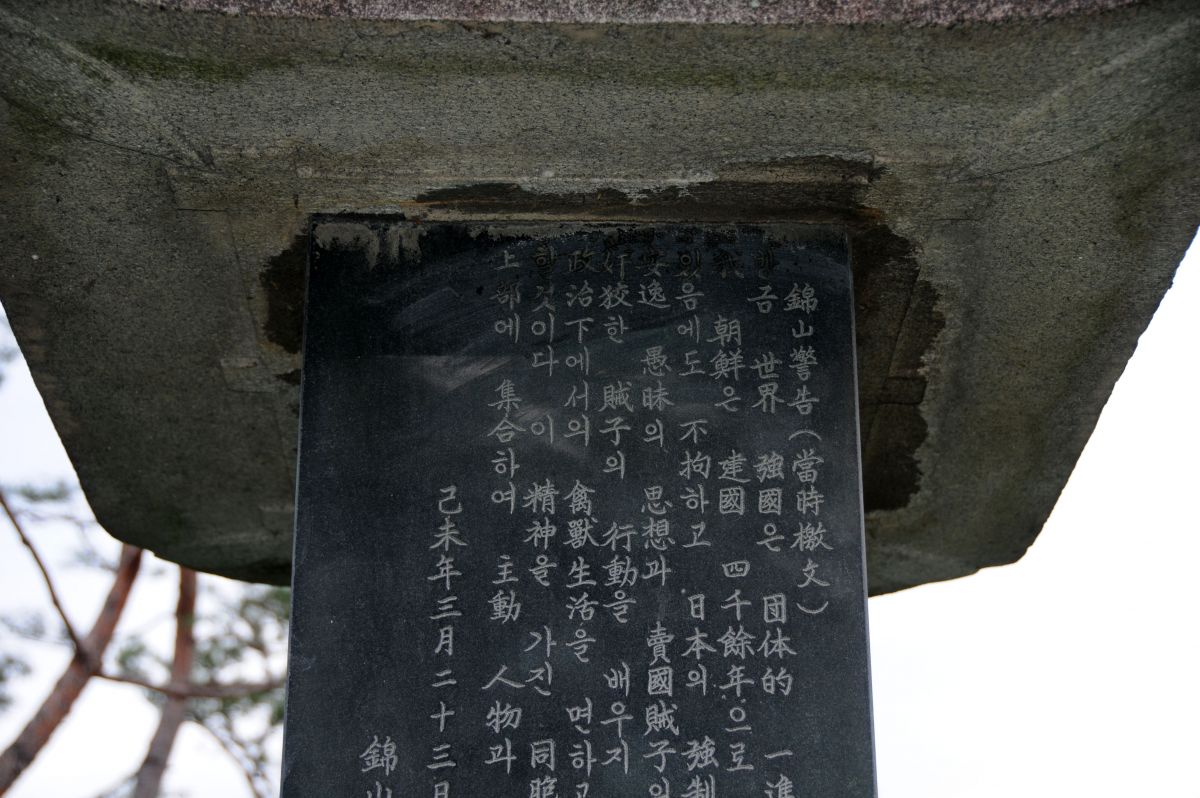 錦山警告(當時檄文)
방금 世界 強國은 団体的 一進
我 朝鮮은 建國 四千餘年으로
있음에도 不拘하고 日本의 強制
安逸 愚昧의 思想과 賣國賊子의
奸狡한 賊子의 行動을 배우지
政治下에서의 禽獸生活을 면하고
할것이다 이 精神을 가진 同胞
上部에 集合하여 主動 人物과
己未年三月二十三日
錦山